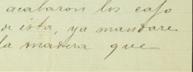 acabaron los cajo
de ista, ya mandare
la madera que